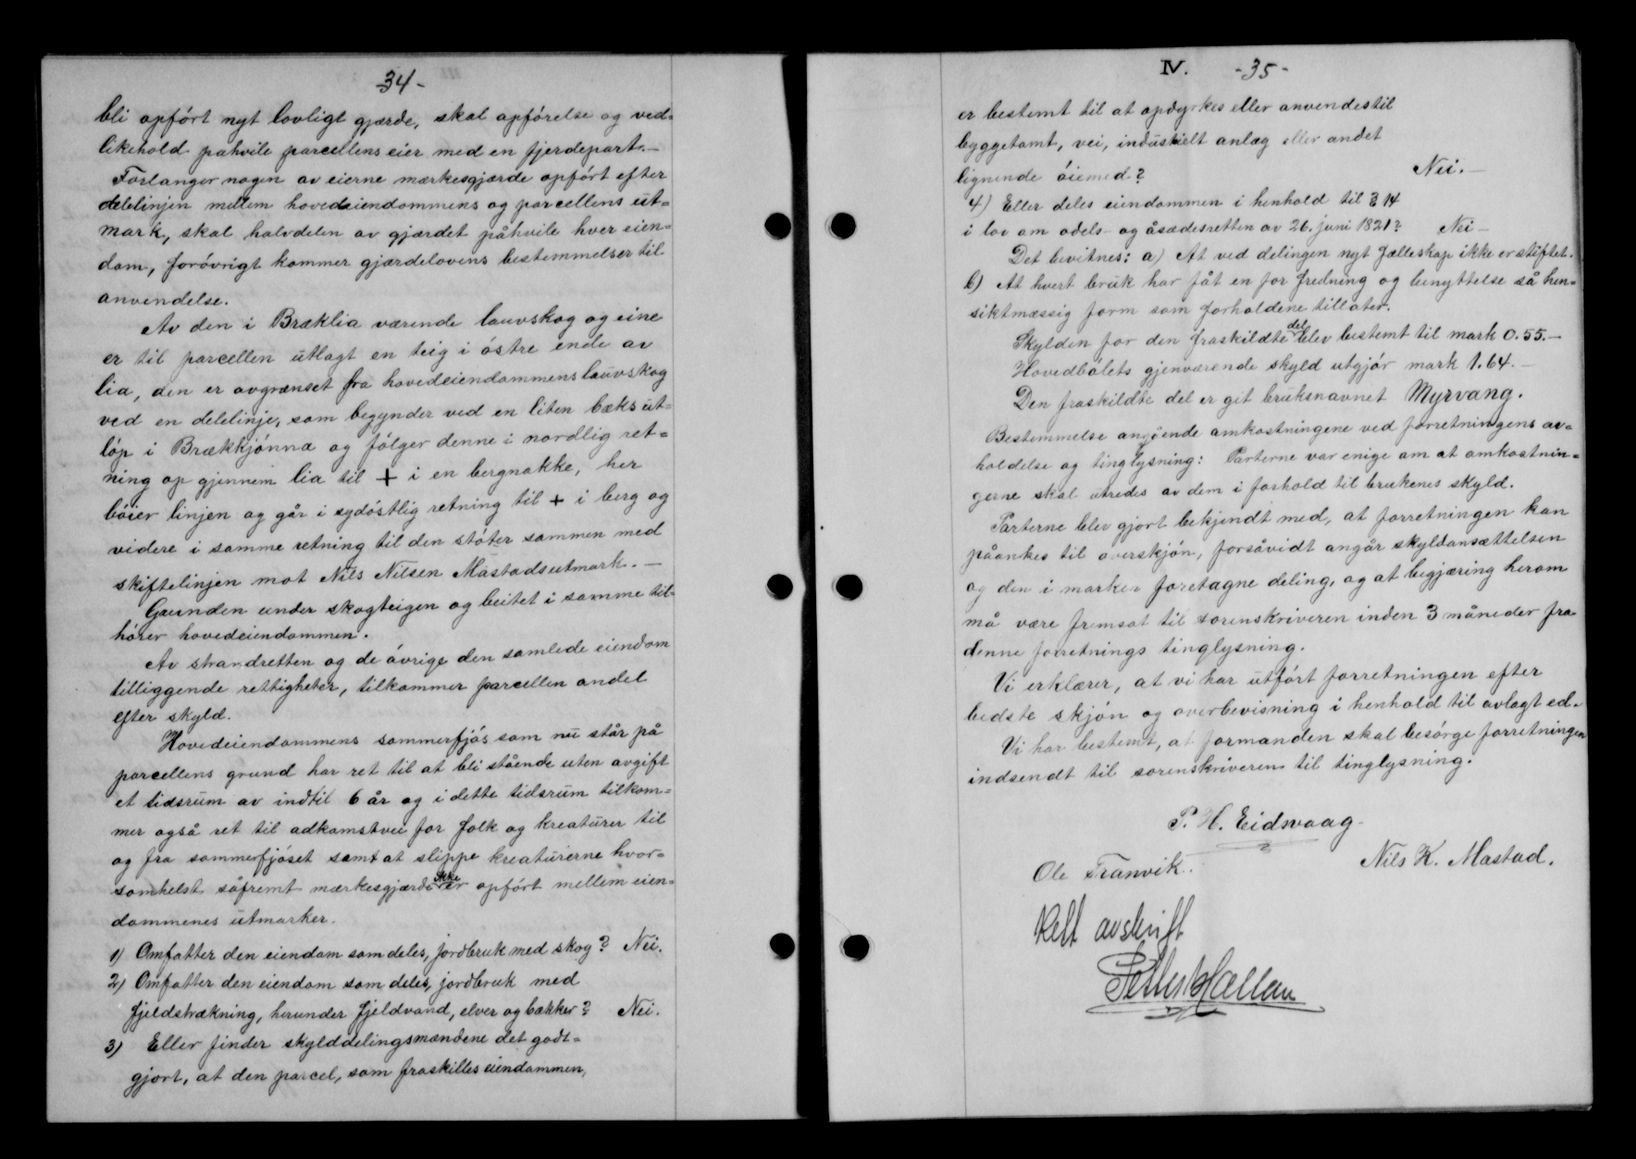 34-
bli opfórt nyt lovligt gjærde, skal opfórelse og ved=
likehold påhvile parcellens eier med en fjerdepart.-
Forlanger nogen av eierne mærkesgjærde opfórt efter
delelinjen mellem hovedeiendommens og parcellens ut=
mark, skal halvdelen av gjærdet påhvile hver eien=
dom, foróvrigt kommer gjærdelovens bestemmelser til
anvendelse.
Av den i Bræklia værende lauvskog og eine
er til parcellen utlagt en teig i óstre ende av
lia, den er avgrænset fra hovedeiendommens lauvskog
ved en delelinje, som begynder ved en liten bæks ut=
lóp i Brækkjónna og fólger denne i nordlig ret=
ning op gjennem lia til + i en bergnakke, her
bóier linjen og går i sydóstlig retning til + i berg og
videre i samme retning til den stóter sammen med
skiftelinjen mot Nils Nilsen Måstadsutmark. -
Grunden under skogteigen og beitet i samme til=
hórer hovedeiendommen.
Av strandretten og de óvrige den samlede eiendom
tilliggende rettigheter, tilkommer parcellen andel
efter skyld.
Hovedeiendommens sommerfjós som nu står på
parcellens grund har ret til at bli stående uten avgift
et tidsrum av indtil 6 år og i dette tidsrum tilkom=
mer også ret til adkomstvei for folk og kreaturer til
og fra sommerfjóset samt at slippe kreaturerne hvor=
somhelst såfremt mærkesgjærde ikke er opfórt mellem eien=
dommenes utmarker.
1) Omfatter den eiendom som deles, jordbruk med skog? Nei.
2) Omfatter den eiendom som deles, jordbruk med
fjeldstrækning, herunder fjeldvand, elver og bækker? Nei.
3) Eller finder skylddelingsmændene det godt=
gjort, at den parcel, som fraskilles eiendommen,
IV. -35-
er bestemt til at opdyrkes eller anvendes til
byggetomt, vei, industrielt anlæg eller andet
lignende óiemed? Nei.-
4) Eller deles eiendommen i henhold til § 14
i lov om odels- og åsædesretten av 26. juni 1821? Nei-
Det bevitnes: a) At ved delingen nyt fælleskap ikke er stiftet.
b) At hvert bruk har fåt en for fredning og benyttelse så hen=
siktmæssig form som forholdene tillater.
Skylden for den fraskildte del blev bestemt til mark 0.55.-
Hovedbólets gjenværende skyld utgjór mark 1.64.-
Den fraskildte del er git bruksnavnet Myrvang.
Bestemmelse angående omkostningene ved forretningens av=
holdelse og tinglysning: Parterne var enige om at omkostnin=
gerne skal utredes av dem i forhold til brukenes skyld.
Parterne blev gjort bekjendt med, at forretningen kan
påankes til overskjón, forsåvidt angår skyldansættelsen
og den i marken foretagne deling, og at begjæring herom
må være fremsat til sorenskriveren inden 3 måneder fra
denne forretnings tinglysning.
Vi erklærer, at vi har utfórt forretningen efter
bedste skjón og overbevisning i henhold til avlagt ed.
Vi har bestemt, at formanden skal besórge forretningen
indsendt til sorenskriveren til tinglysning.
P. H. Eidsvaag.
Ole Tranvik. Nils K. Mastad.
Rett avskrift
Petter Hallan